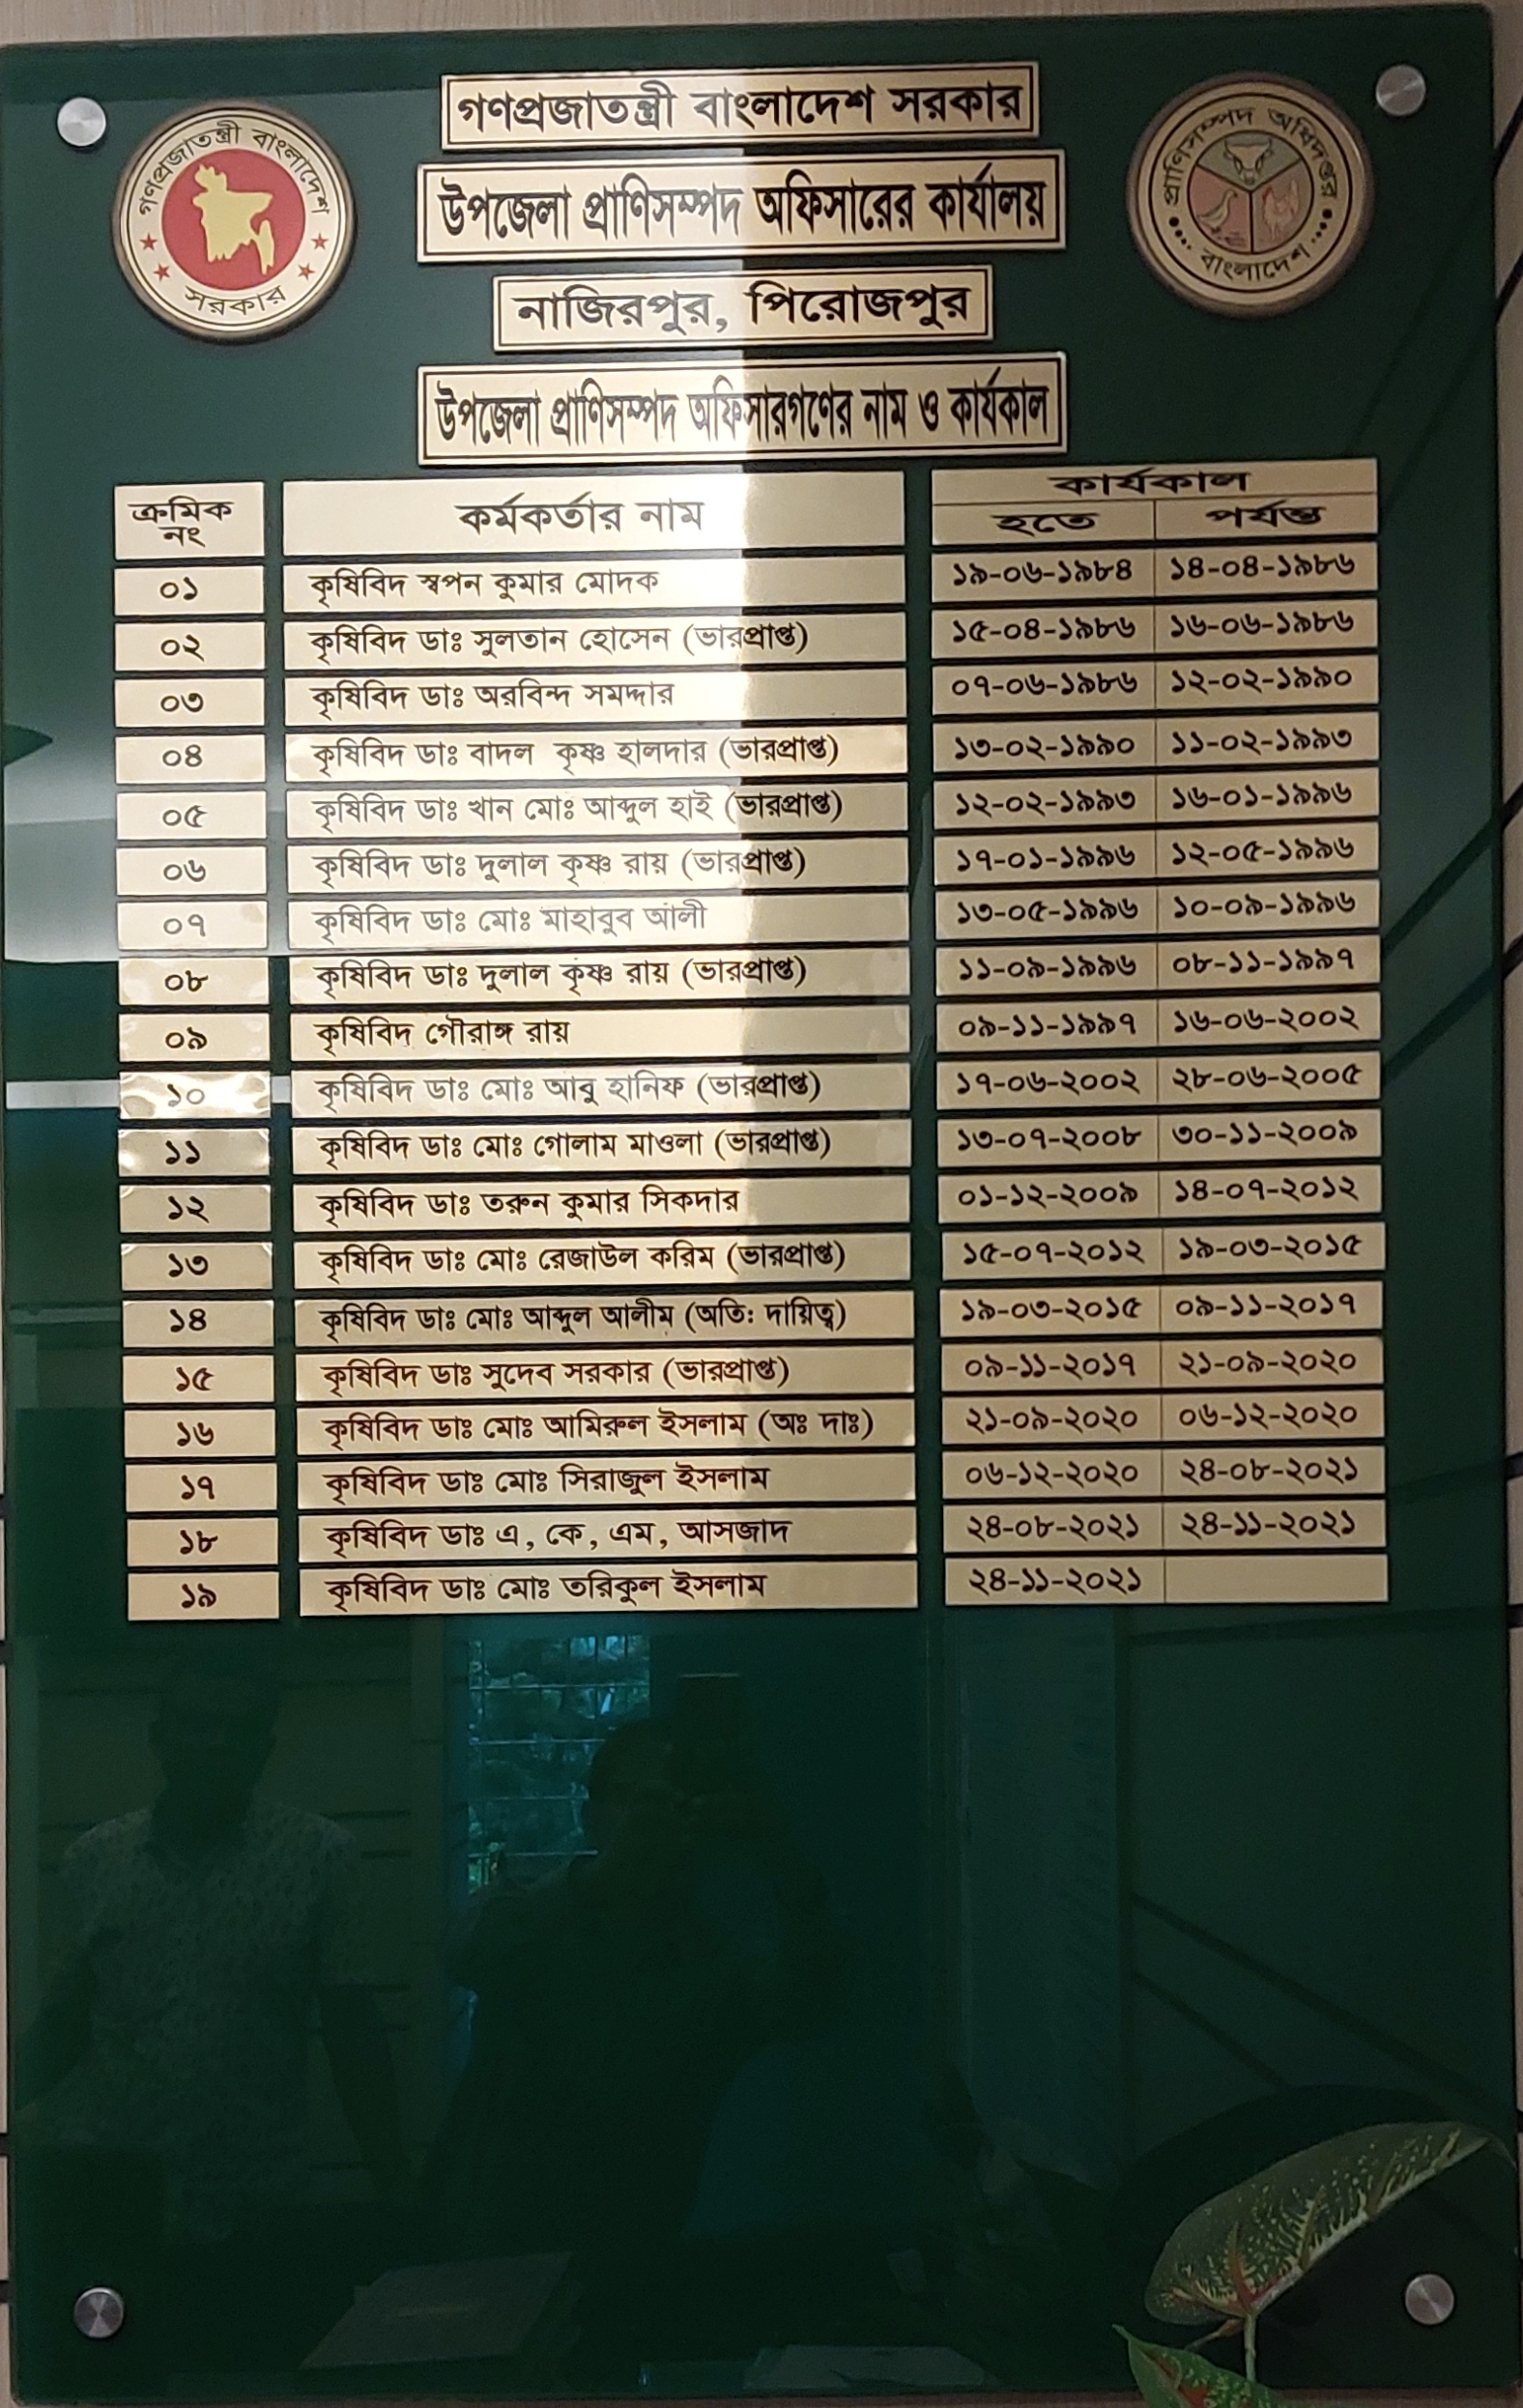 গণপ্রজাতন্ত্রী বাংলাদেশ সরকার
উপজেলা প্রাণিসম্পদ অফিসারের কার্যালয়
নাজিরপুর, পিরোজপুর
উপজেলা প্রাণিসম্পদ অফিসারগণের নাম ও কার্যকাল
গণপ্রজাতন্ত্রী বাংলাদেশ
সরকার
প্রাণিসম্পদ অধিদপ্তর
বাংলাদেশ
ক্রমিক নং কর্মকর্তার নাম কার্যকাল
হতে পর্যন্ত
০১ কৃষিবিদ স্বপন কুমার মোদক ১৯-০৬-১৯৮৪ ১৪-০৪-১৯৮৬
০২ কৃষিবিদ ডাঃ সুলতান হোসেন (ভারপ্রাপ্ত) ১৫-০৪-১৯৮৬ ১৬-০৬-১৯৮৬
০৩ কৃষিবিদ ডাঃ অরবিন্দ সমদ্দার ০৭-০৬-১৯৮৬ ১২-০২-১৯৯০
০৪ কৃষিবিদ ডাঃ বাদল কৃষ্ণ হালদার (ভারপ্রাপ্ত) ১৩-০২-১৯৯০ ১১-০২-১৯৯৩
০৫ কৃষিবিদ ডাঃ খান মোঃ আব্দুল হাই (ভারপ্রাপ্ত) ১২-০২-১৯৯৩ ১৬-০১-১৯৯৬
০৬ কৃষিবিদ ডাঃ দুলাল কৃষ্ণ রায় (ভারপ্রাপ্ত) ১৭-০১-১৯৯৬ ১২-০৫-১৯৯৬
০৭ কৃষিবিদ ডাঃ মোঃ মাহাবুব আলী ১৩-০৫-১৯৯৬ ১০-০৯-১৯৯৬
০৮ কৃষিবিদ ডাঃ দুলাল কৃষ্ণ রায় (ভারপ্রাপ্ত) ১১-০৯-১৯৯৬ ০৮-১১-১৯৯৭
০৯ কৃষিবিদ গৌরাঙ্গ রায় ০৯-১১-১৯৯৭ ১৬-০৬-২০০২
১০ কৃষিবিদ ডাঃ মোঃ আবু হানিফ (ভারপ্রাপ্ত) ১৭-০৬-২০০২ ২৮-০৬-২০০৫
১১ কৃষিবিদ ডাঃ মোঃ গোলাম মাওলা (ভারপ্রাপ্ত) ১৩-০৭-২০০৮ ৩০-১১-২০০৯
১২ কৃষিবিদ ডাঃ তরুন কুমার সিকদার ০১-১২-২০০৯ ১৪-০৭-২০১২
১৩ কৃষিবিদ ডাঃ মোঃ রেজাউল করিম (ভারপ্রাপ্ত) ১৫-০৭-২০১২ ১৯-০৩-২০১৫
১৪ কৃষিবিদ ডাঃ মোঃ আব্দুল আলীম (অতি: দায়িত্ব) ১৯-০৩-২০১৫ ০৯-১১-২০১৭
১৫ কৃষিবিদ ডাঃ সুদেব সরকার (ভারপ্রাপ্ত) ০৯-১১-২০১৭ ২১-০৯-২০২০
১৬ কৃষিবিদ ডাঃ মোঃ আমিরুল ইসলাম (অঃ দাঃ) ২১-০৯-২০২০ ০৬-১২-২০২০
১৭ কৃষিবিদ ডাঃ মোঃ সিরাজুল ইসলাম ০৬-১২-২০২০ ২৪-০৮-২০২১
১৮ কৃষিবিদ ডাঃ এ, কে, এম, আসজাদ ২৪-০৮-২০২১ ২৪-১১-২০২১
১৯ কৃষিবিদ ডাঃ মোঃ তরিকুল ইসলাম ২৪-১১-২০২১